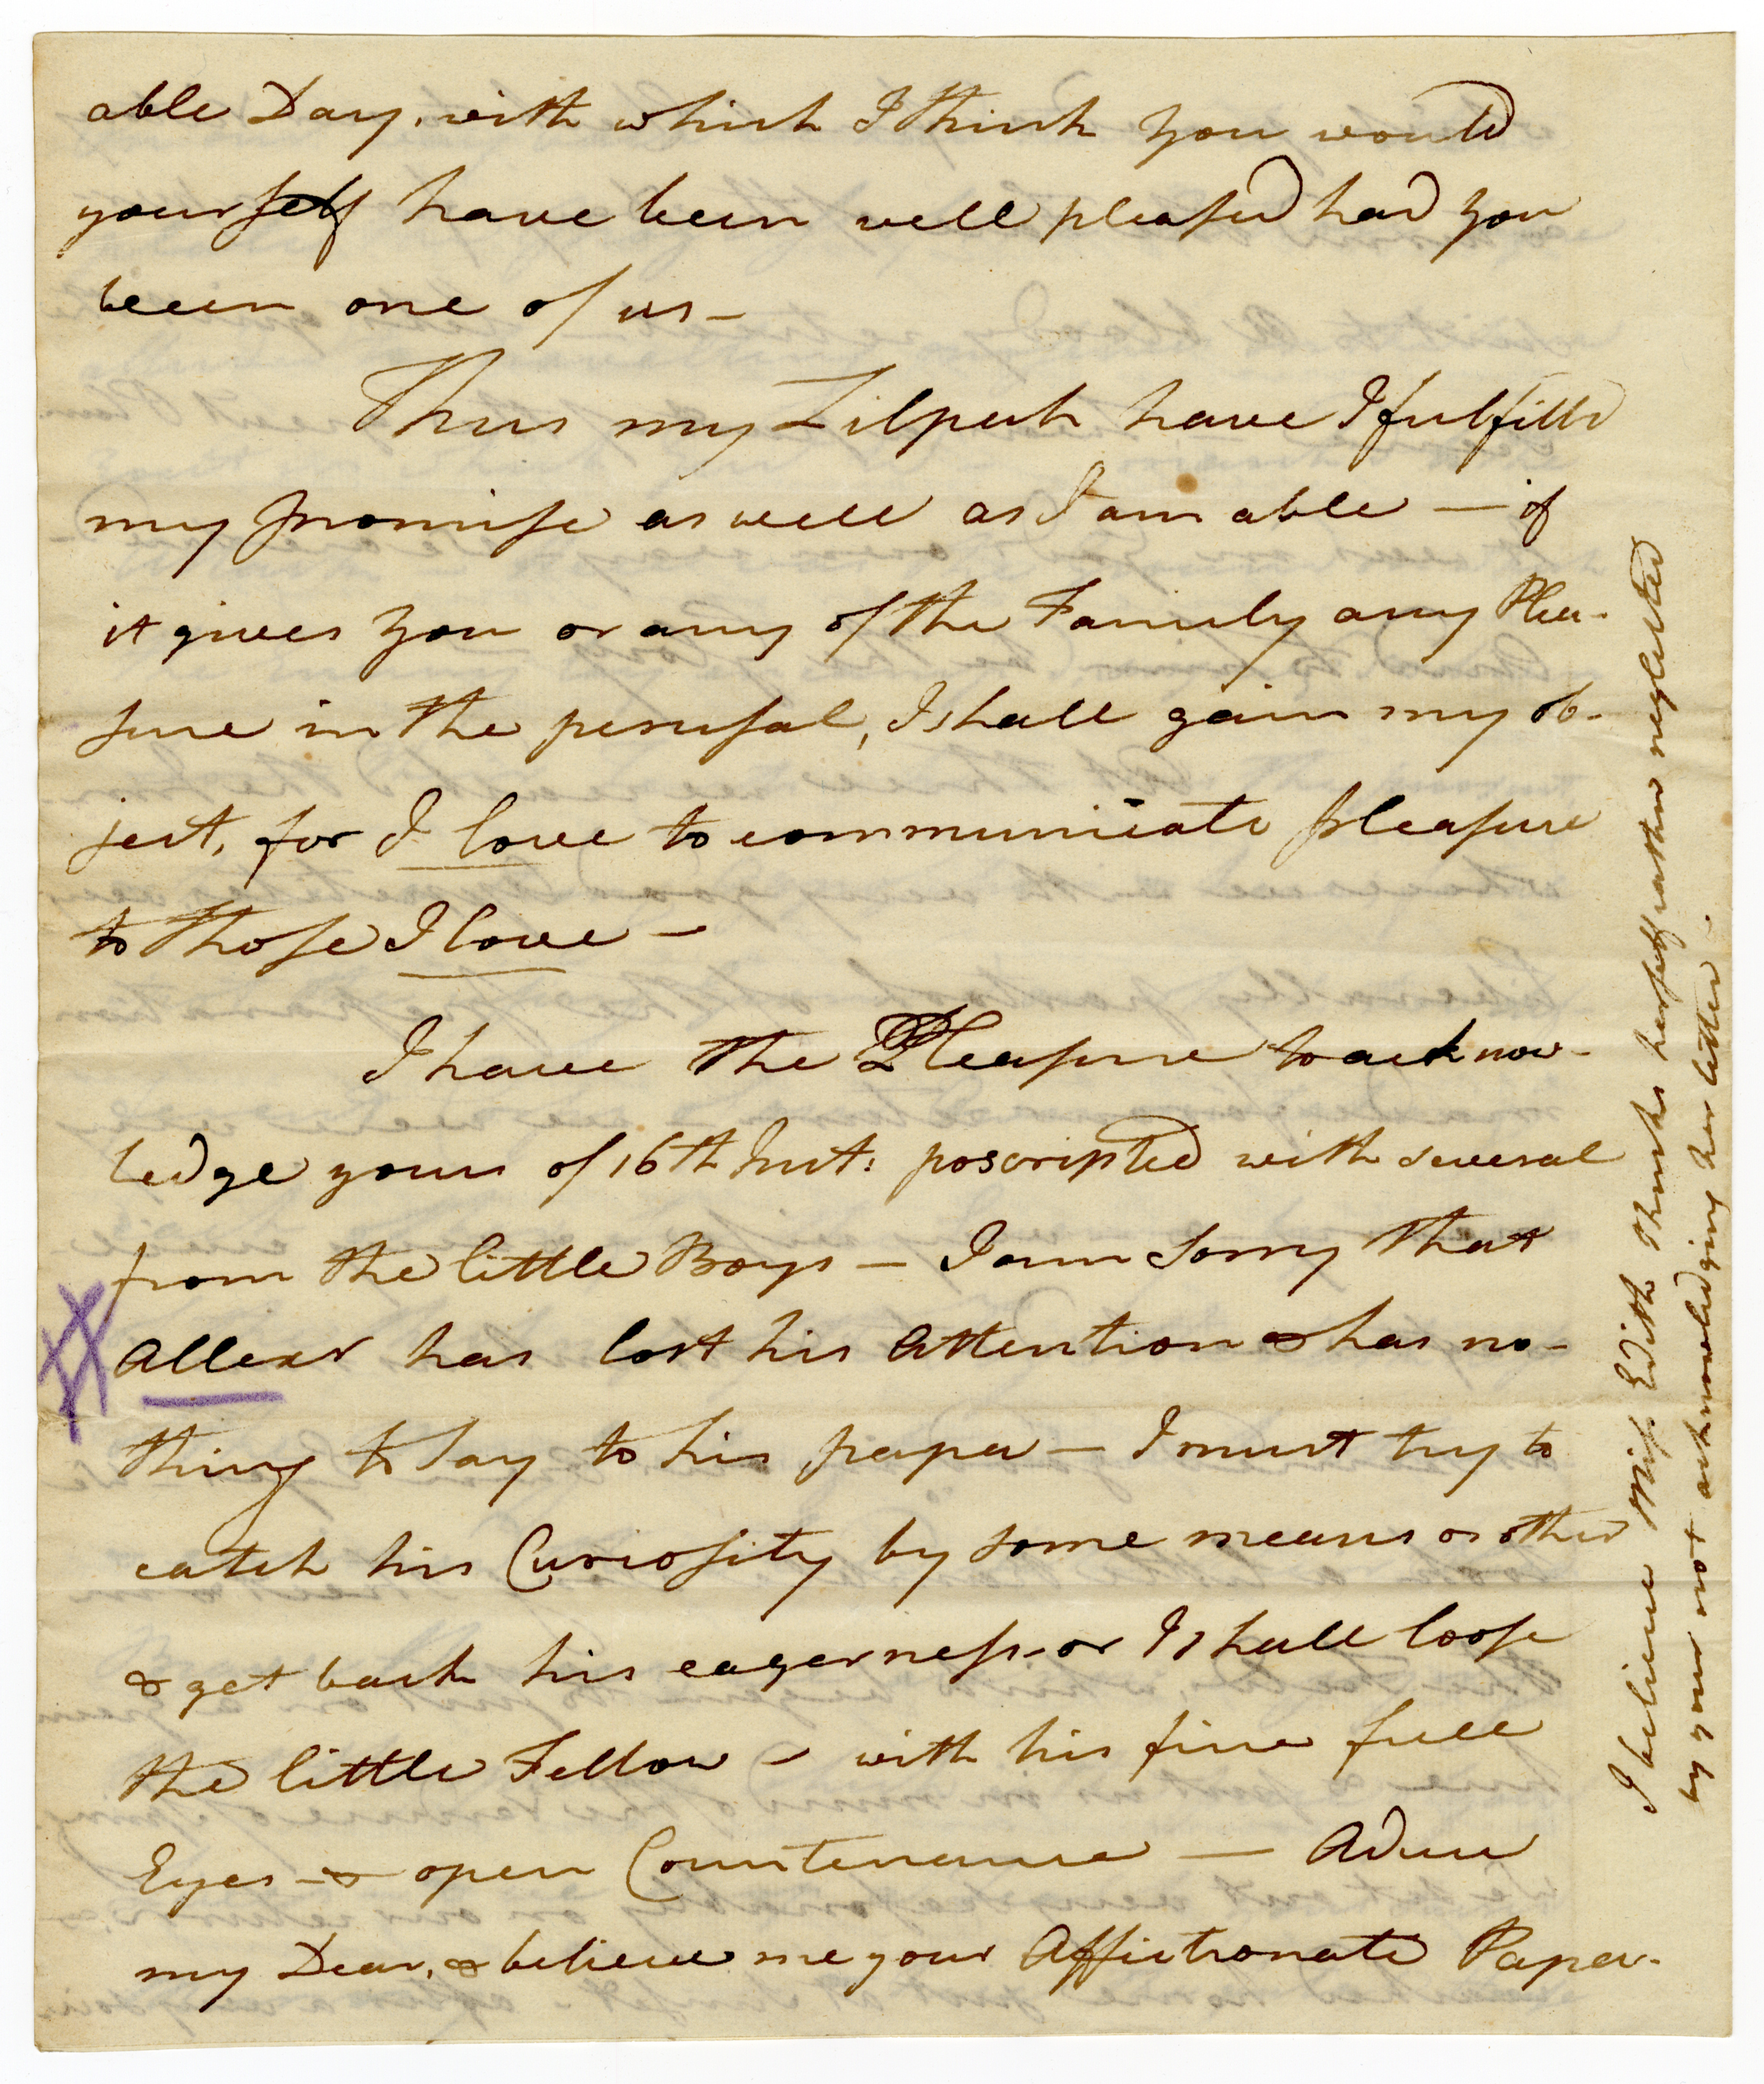 able Day, with which I think you would
yourself have been well pleased had you
been one of us –
Thus my Zilpah have I fulfilld
my promise as well as I am able — if
it gives you or any of the Family any Plea-
sure in the perusal, I shall gain my ob-
ject, for I love to communicate pleasure
to those I love –
I have the Pleasure to acknow-
ledge yours of 16th Inst: poscripted with several
from the little Boys – I am sorry that
Allexr has lost his Attention & has no-
thing to say to his papa – I must try to
catch his Curiosity by some means or other
& get back his eagerness – or I shall loose
the little Fellow – with his fine full
Eyes – & open Countenance — Adieu
my Dear, & believe me your Affectionate Papa.
I believe Miss Edith thinks herself rather neglected
by your not acknowledging her letter.